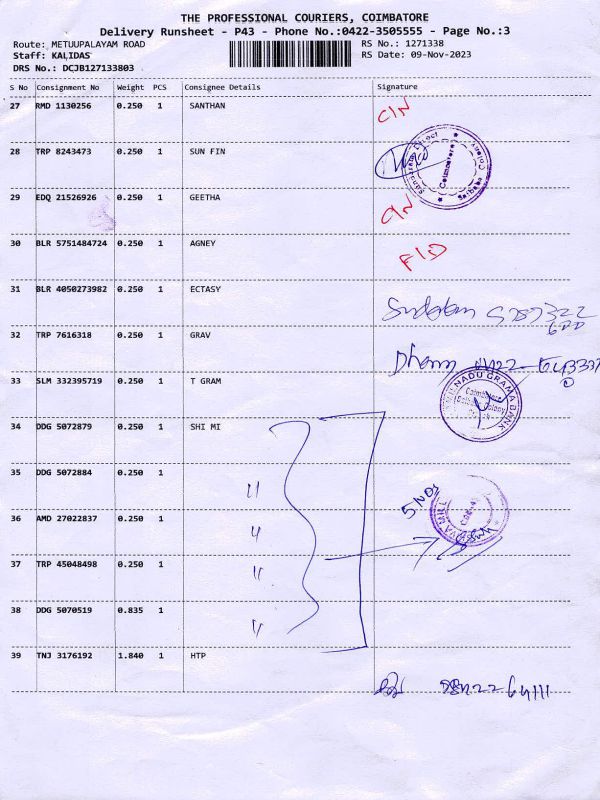 THE PROFESSIONAL COURIERS, COIMBATORE
Delivery Runsheet - P43 - Phone No.:0422-3505555 - Page No.:3
Route: METUUPALAYAM ROAD
RS No.: 1271338
Staff: KALIDAS
RS Date: 09-Nov-2023
DRS No.: DCJB127133803
S No Consignment No Weight PCS Consignee Details Signature
27 RMD 1130256 0.250 1 SANTHAN
28 TRP 8243473 0.250 1 SUN FIN
Coimbatore
29 EDQ 21526926 0.250 1 GEETHA
30 BLR 5751484724 0.250 1 AGNEY
31 BLR 4050273982 0.250 1 ECTASY
32 TRP 7616318 0.250 1 GRAV
33 SLM 332395719 0.250 1 T GRAM
NADU GRAMA BANK
Coimbatore
34 DDG 5072879 0.250 1 SHI MI
35 DDG 5072884 0.250 1 "
5 NOs
36 AMD 27022837 0.250 1 "
37 TRP 45048498 0.250 1 "
38 DDG 5070519 0.835 1 "
39 TNJ 3176192 1.840 1 HTP